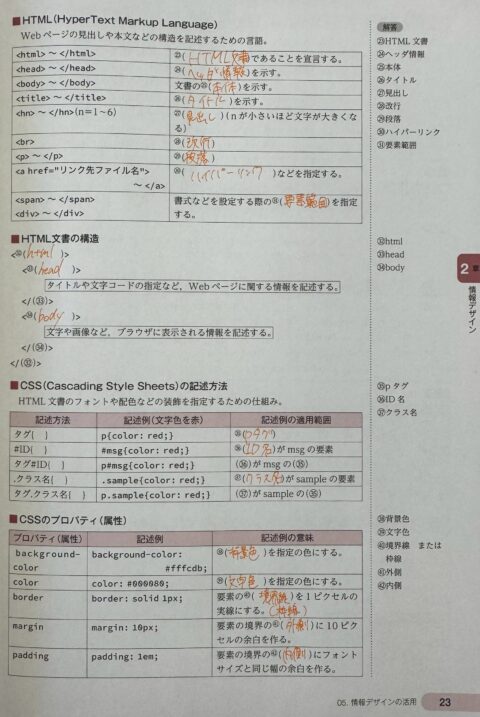 ■HTML(HyperText Markup Language)
Webページの見出しや本文などの構造を記述するための言語。
<html> ～ </html> ㉓(HTML文書)であることを宣言する。
<head> ～ </head> ㉔(ヘッダ情報)を示す。
<body> ～ </body> 文書の㉕(本体)を示す。
<title> ～ </title> ㉖(タイトル)を示す。
<hn> ～ </hn>(n＝1～6) ㉗(見出し)(nが小さいほど文字が大きくなる)
<br> ㉘(改行)
<p> ～ </p> ㉙(段落)
<a href="リンク先ファイル名"> ～ </a> ㉚(ハイパーリンク)などを指定する。
<span> ～ </span>
<div> ～ </div> 書式などを設定する際の㉛(要素範囲)を指定する。
■HTML文書の構造
<㉜(html)>
<㉝(head)>
タイトルや文字コードの指定など，Webページに関する情報を記述する。
</(㉝)>
<㉞(body)>
文字や画像など，ブラウザに表示される情報を記述する。
</(㉞)>
</(㉜)>
■CSS(Cascading Style Sheets)の記述方法
HTML文書のフォントや配色などの装飾を指定するための仕組み。
記述方法 記述例(文字色を赤) 記述例の適用範囲
タグ{ } p{color: red;} ㉟(pタグ)
#ID{ } #msg{color: red;} ㊱(ID名)がmsgの要素
タグ#ID{ } p#msg{color: red;} (㊱)がmsgの(㉟)
.クラス名{ } .sample{color: red;} ㊲(クラス名)がsampleの要素
タグ.クラス名{ } p.sample{color: red;} (㊲)がsampleの(㉟)
■CSSのプロパティ(属性)
プロパティ(属性) 記述例 記述例の意味
background-color background-color: #fffcdb; ㊳(背景色)を指定の色にする。
color color: #000080; ㊴(文字色)を指定の色にする。
border border: solid 1px; 要素の㊵(境界線)を1ピクセルの実線にする。(枠線)
margin margin: 10px; 要素の境界の㊶(外側)に10ピクセルの余白を作る。
padding padding: 1em; 要素の境界の㊷(内側)にフォントサイズと同じ幅の余白を作る。
解答
㉓HTML文書
㉔ヘッダ情報
㉕本体
㉖タイトル
㉗見出し
㉘改行
㉙段落
㉚ハイパーリンク
㉛要素範囲
㉜html
㉝head
㉞body
㉟pタグ
㊱ID名
㊲クラス名
㊳背景色
㊴文字色
㊵境界線 または
枠線
㊶外側
㊷内側
2 章
情報デザイン
05. 情報デザインの活用 23